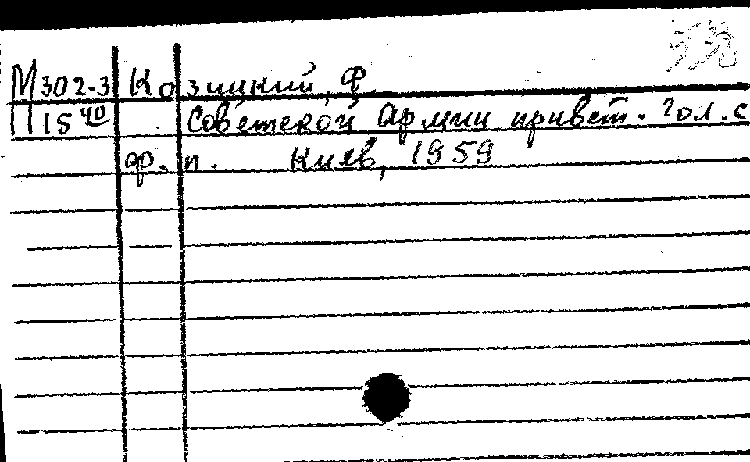 М302-3 Козицкий, Ф.
15 40 Советской Армии привет. Гол. с
ф. п. Киев, 1959